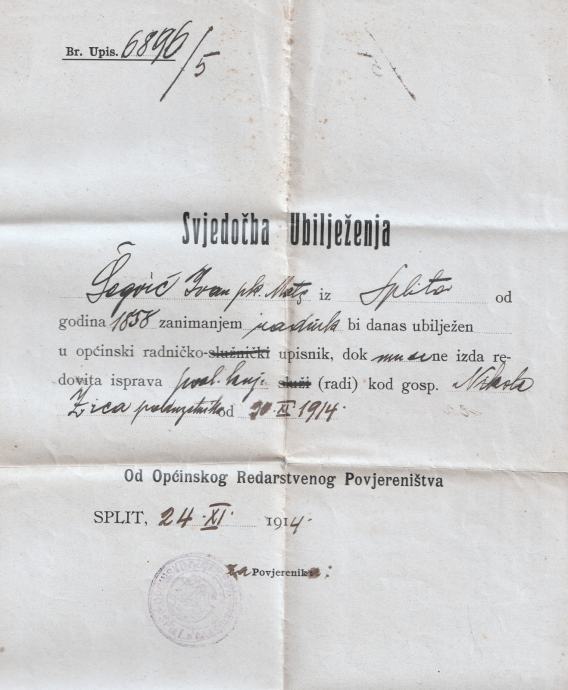 Br. Upis. 6896/5
Svjedočba Ubilježenja
Šegvić Ivan pk. Mate iz Splita od
godina 1858 zanimanjem radnik bi danas ubilježen
u općinski radničko-služnički upisnik, dok mu se ne izda re-
dovita isprava posl. knj. služi (radi) kod gosp. Nikola
Žica od 20 XI 1914.
Od Općinskog Redarstvenog Povjereništva
SPLIT, 24 XI 1914.
za Povjerenika: